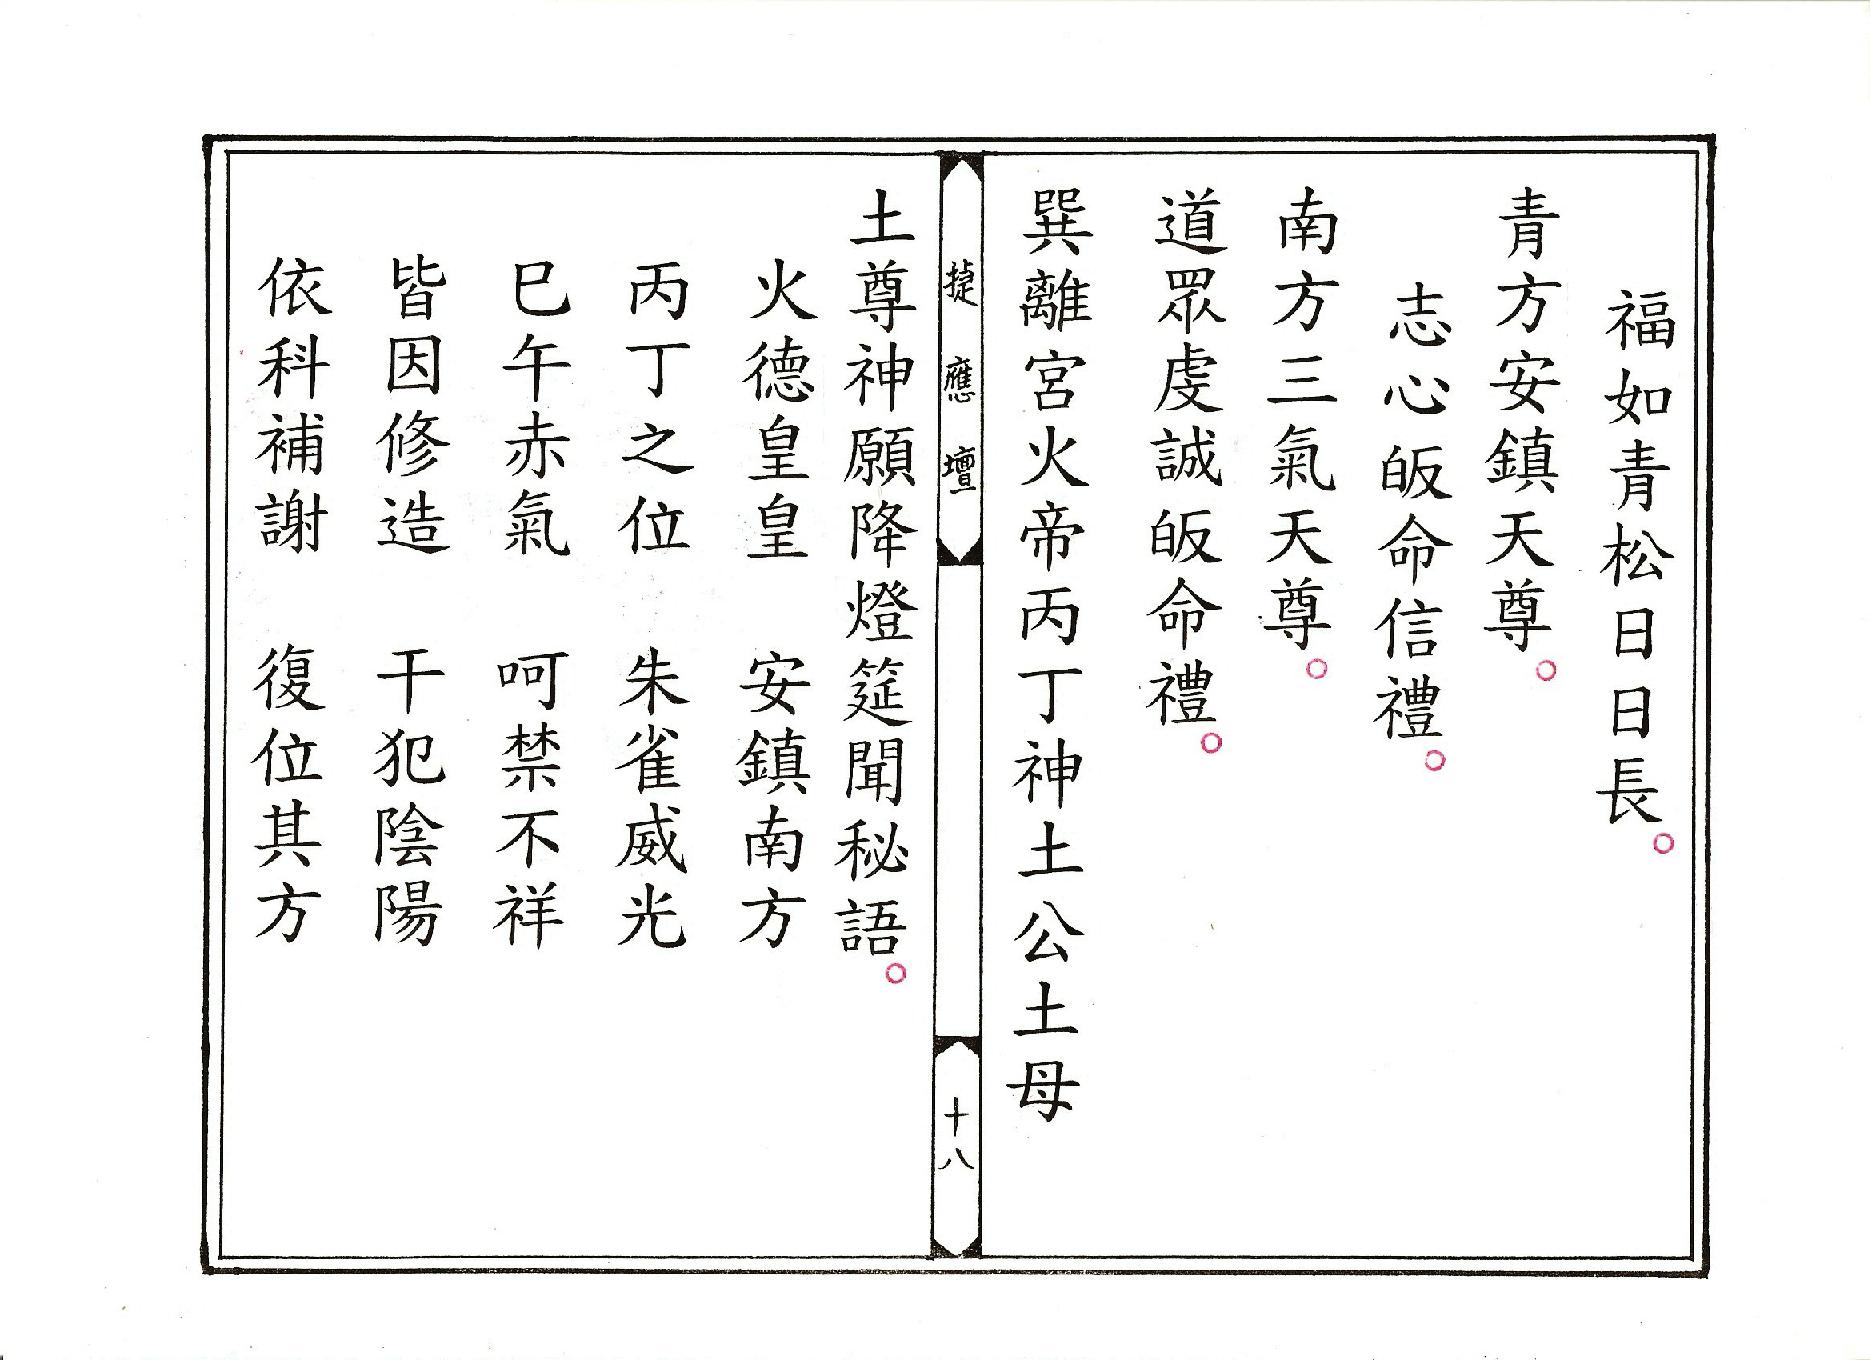 福如青松日日長。
青方安鎮天尊。
志心皈命信禮。
南方三氣天尊。
道眾虔誠皈命禮。
巽離宮火帝丙丁神土公土母
捷應壇
十八
土尊神願降燈筵聞秘語。
火德皇皇　安鎮南方
丙丁之位　朱雀威光
巳午赤氣　呵禁不祥
皆因修造　干犯陰陽
依科補謝　復位其方